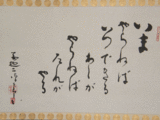 いま
やらねば
いつできる
わしが
やらねば
たれが
やる